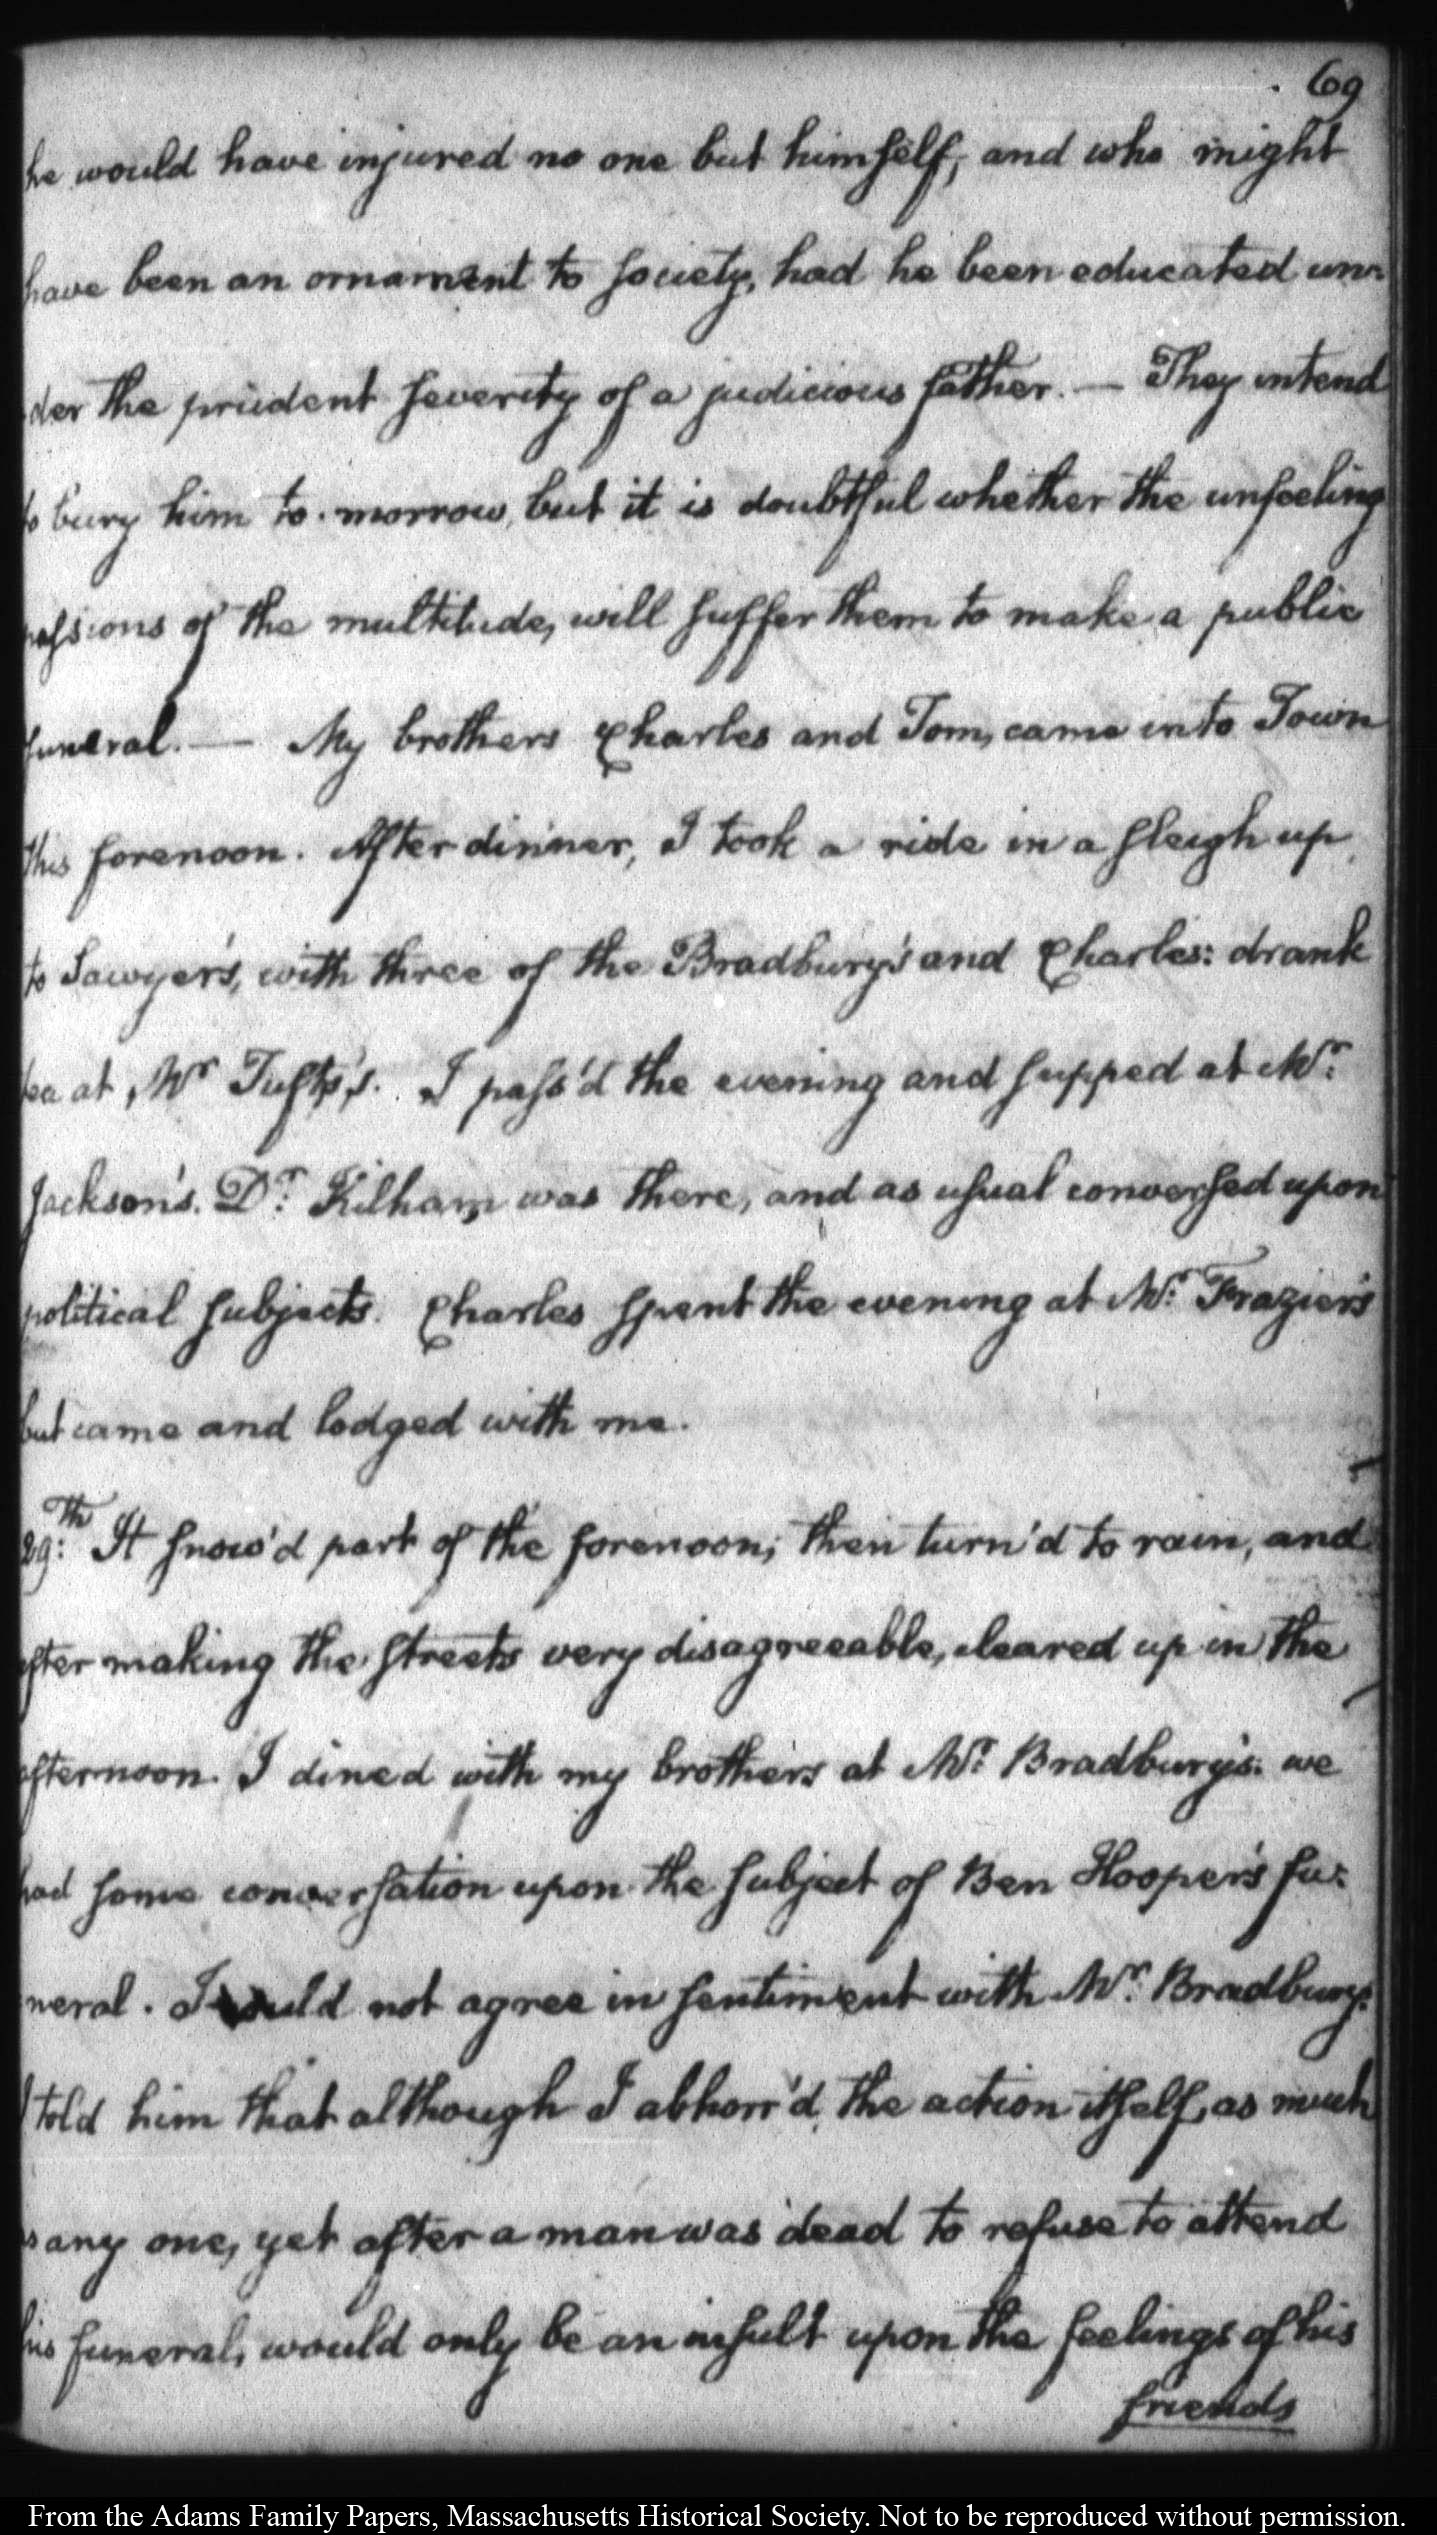 69
he would have injured no one but himself, and who might
have been an ornament to society, had he been educated un-
der the prudent severity of a judicious father. — They intend
to bury him to-morrow, but it is doubtful whether the unfeeling
passions of the multitude, will suffer them to make a public
funeral. — My brothers Charles and Tom, came into Town
this forenoon. After dinner, I took a ride in a sleigh up
to Sawyer's, with three of the Bradbury's and Charles: drank
tea at Mr Tufts's. I pass'd the evening and supped at Mr.
Jackson's. Dr. Kilham was there, and as usual conversed upon
political subjects. Charles spent the evening at Mr. Frazier's
but came and lodged with me.
29th: It snow'd part of the forenoon; then turn'd to rain, and
after making the streets very disagreeable, cleared up in the
afternoon. I dined with my brothers at Mr. Bradbury's: we
had some conversation upon the subject of Ben Hooper's fu-
neral. I could not agree in sentiment with Mr. Bradbury.
I told him that although I abhorr'd the action itself, as much
as any one, yet after a man was dead to refuse to attend
his funeral, would only be an insult upon the feelings of his
friends
From the Adams Family Papers, Massachusetts Historical Society. Not to be reproduced without permission.